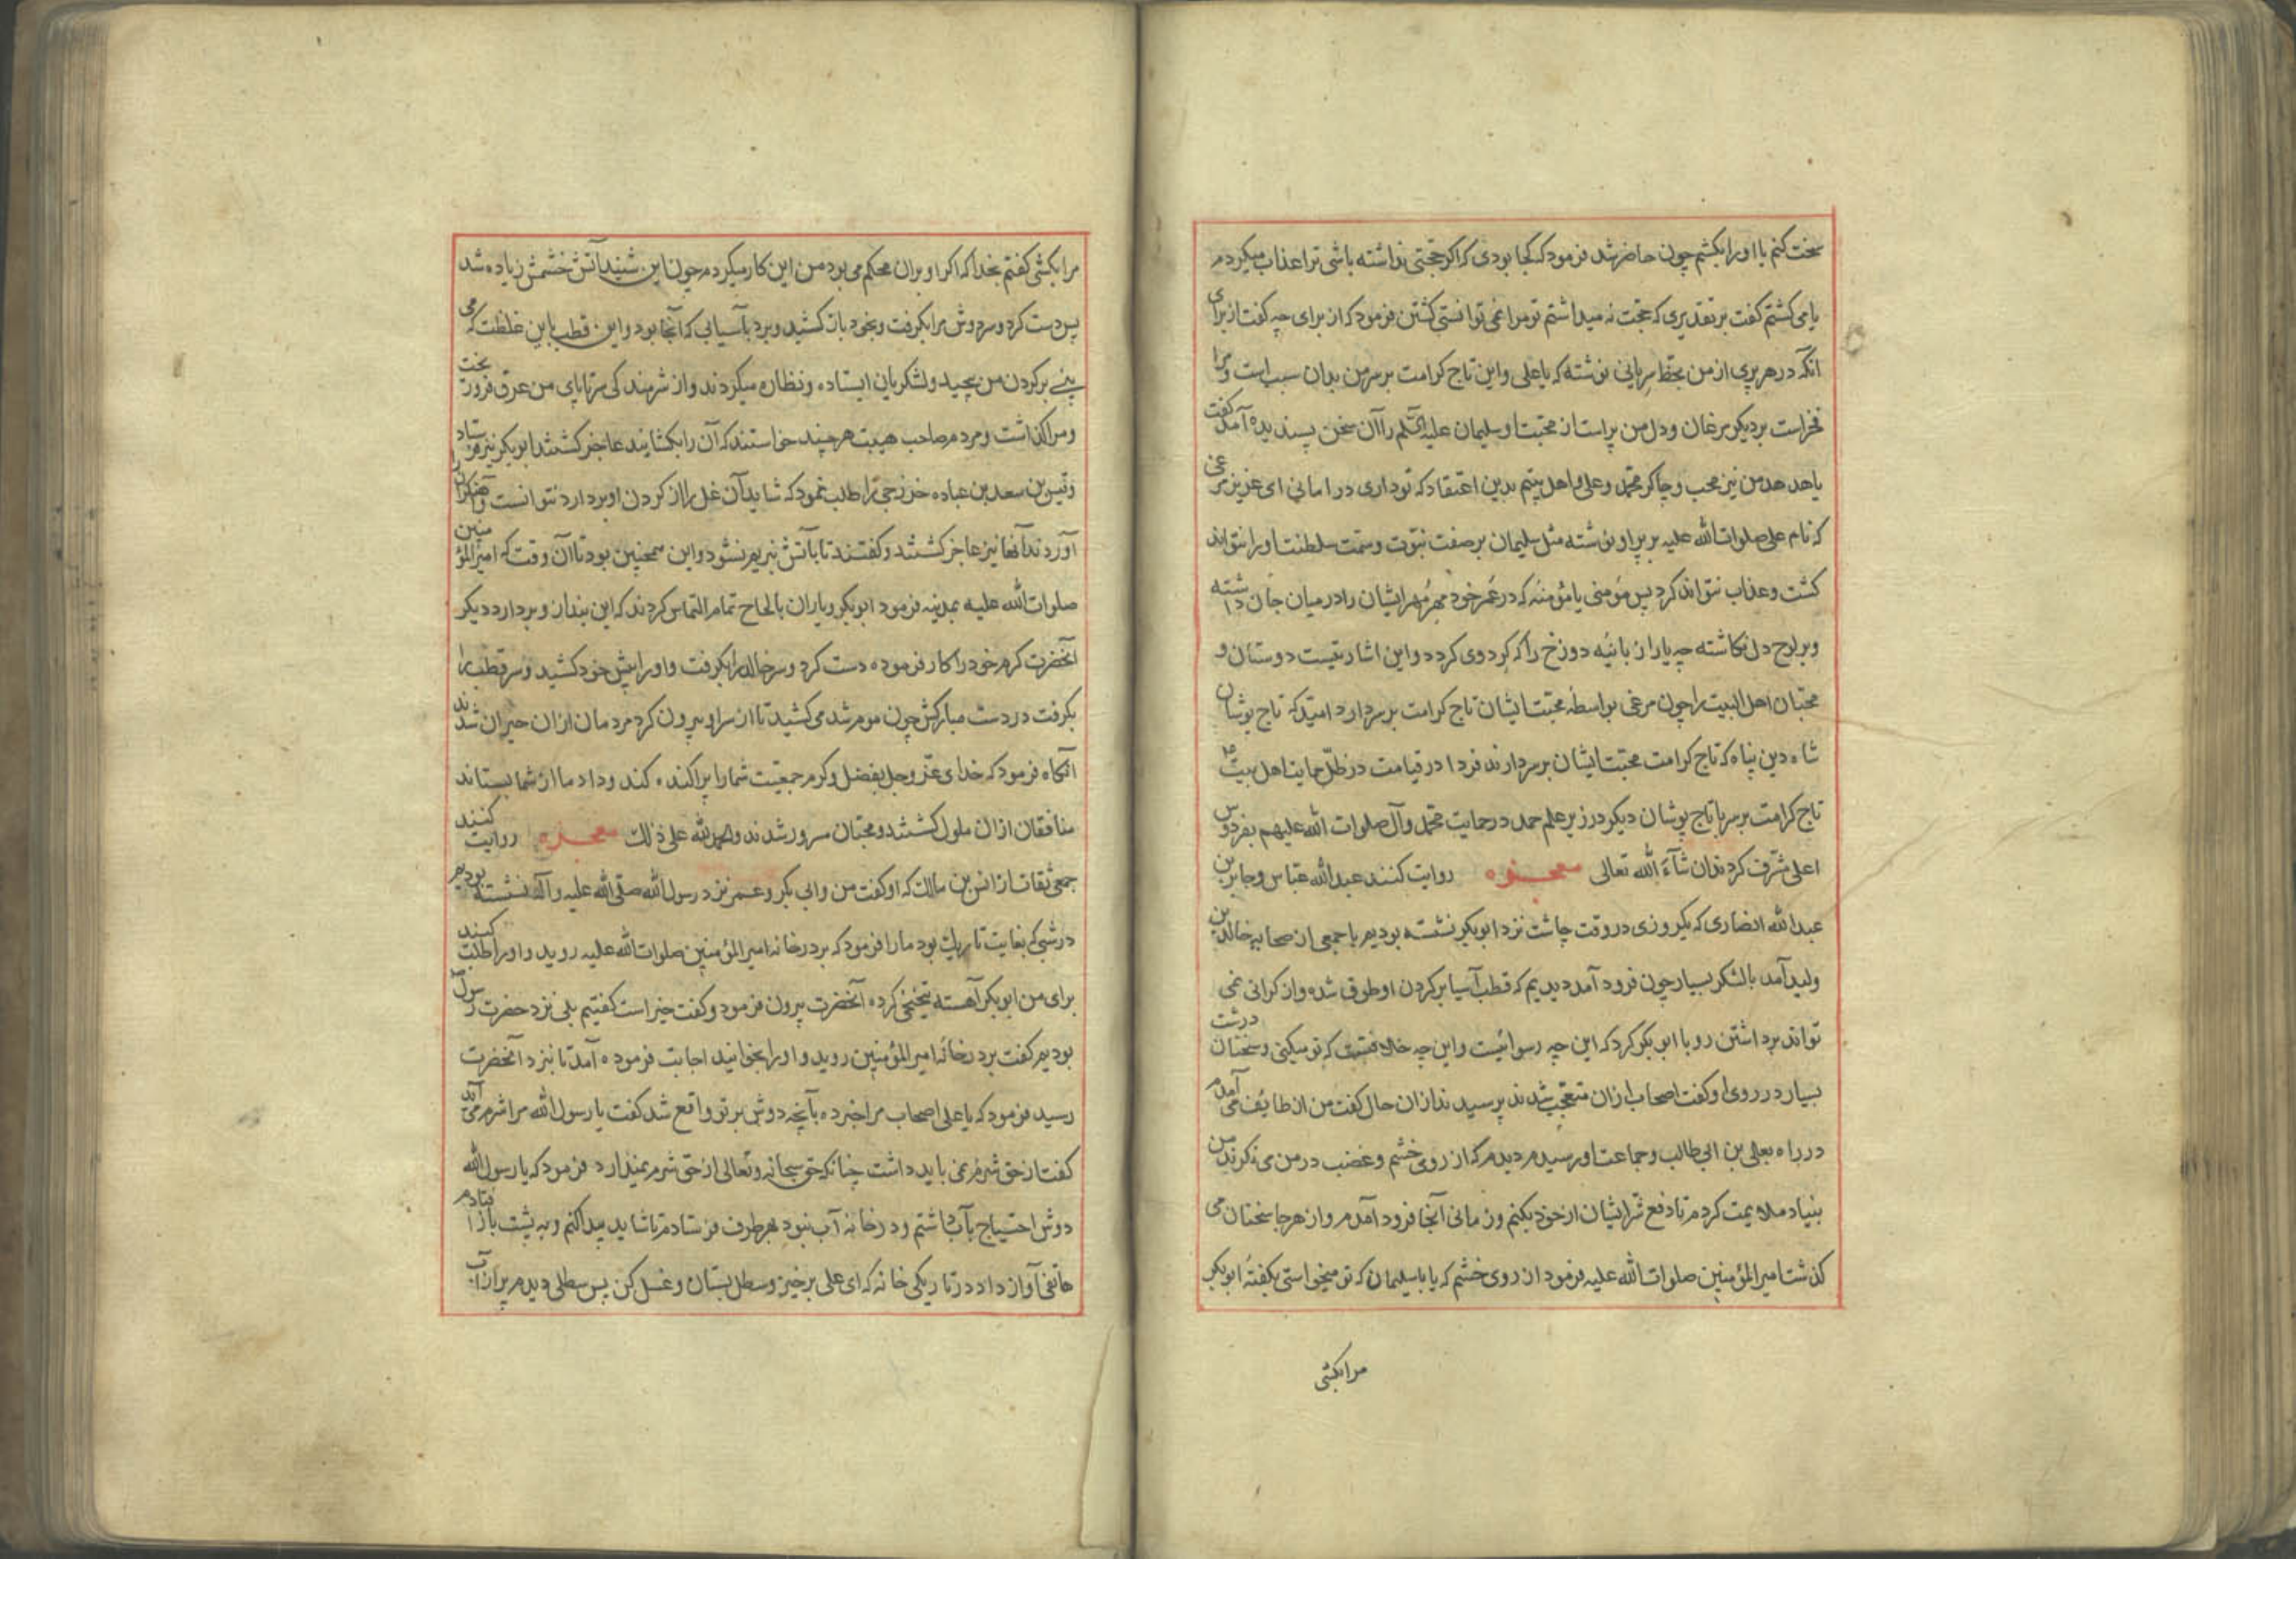 سخت کنم یا اورا بکشم چون حاضر شد فرمود که کجا بودی که اکر حجتی نداشته باشی ترا عذاب میکردم
یا می کشتم کفت بر تقدیری که حجت نه میداشتم تو مرا نمی توانستی کشتن فرمود که از برای چه کفت از برای
آنکه در هر پری از من بخط سریانی نوشته که یا علی و این تاج کرامت بر سر من بدان سبب است و مرا
فخر است بر دیکر مرغان و دل من پر است از محبت او سلیمان علیه السلم را آن سخن پسندیده آمد کفت
یا هدهد من نیز محب و چاکر محمد و علی و اهل بیتم بدین اعتقاد که تو داری در امانی ای عزیز مرغی
که نام علی صلوات الله علیه بر پر او نوشته مثل سلیمان بر صفت نبوت و سمت سلطنت اورا نتواند
کشت و عذاب نتواند کرد پس مؤمنی یا مؤمنه که در عمر خود مهر مهر ایشان را در میان جان داشته
و بر لوح دل نکاشته چه یارا زبانیه دوزخ را که کرد وی کردد و این اشارتیست دوستان و
محبان اهل البیت را چون مرغی بواسطه محبت ایشان تاج کرامت بر سر دارد امید که تاج پوشان
شاه دین پناه که تاج کرامت محبت ایشان بر سر دارند فردا در قیامت در ظل حمایت اهل بیت
تاج کرامت بر سر با تاج پوشان دیکر در زیر علم حمد در حمایت محمد و آل صلوات الله علیهم بفردوس
اعلی مشرف کردند ان شآء الله تعالی معجزه روایت کنند عبدالله عباس و جابر بن
عبدالله انصاری که یکروزی در وقت چاشت نزد ابوبکر نشسته بودیم با جمعی از صحابه خالد بن
ولید آمد با لشکر بسیار چون فرود آمد دیدیم که قطب آسیا بر کردن او طوق شده و از کرانی نمی
تواند برداشتن رو با ابوبکر کرد که این چه رسوائیست و این چه خلافتیست که تو میکنی و سخنان درشت
بسیار در روی او کفت اصحاب ازان متعجب شدند پرسیدند ازان حال کفت من از طایف می آمدم
در راه بعلی بن ابی طالب و جماعت او رسیدم دیدم که از روی خشم و غضب در من می نکرند من
بنیاد ملایمت کردم تا دفع شر ایشان از خود بکنم و زمانی آنجا فرود آمدم و از هر جا سخنان می
کذشت امیر المؤمنین صلوات الله علیه فرمود از روی خشم که یا با سلیمان که تو میخواستی بکفته ابوبکر
مرا بکشی
مرا بکشی کفتم بخدا که اکر او بران محکم می بود من این کار میکردم چون این شنید آتش خشمش زیاده شد
پس دست کرد و سر دوش مرا بکرفت و بخود باز کشید و برد بآسیابی که آنجا بود و این قطب باین غلظت که می
بینی بر کردن من پیچید و لشکریان ایستاده و نظاره میکردند و از شرمندکی سرتاپای من عرق فرو ریخت
و مرا کذاشت و مردم صاحب هیبت هر چند خواستند که آن را بکشایند عاجز کشتند ابوبکر نیز فرستاد
و قیس بن سعد بن عباده خزرجی را طلب نمود که شاید آن غل را از کردن او بردارد نتوانست و آهنکران را
آوردند آنها نیز عاجز کشتند و کفتند تا بآتش نبریم نشود و این همچنین بود تا آن وقت که امیر المؤمنین
صلوات الله علیه بمدینه فرمود ابوبکر و یاران بالحاح تمام التماس کردند که این بند ازو بردارد دیکر
آنحضرت کرم خود را کار فرموده دست کرد و سر خالد را بکرفت و اورا پیش خود کشید و سر قطب را
بکرفت در دست مبارکش چون موم شد می کشید تا از سر او بیرون کرد مردمان ازان حیران شدند
آنکاه فرمود که خدای عز و جل بفضل و کرم جمعیت شما را پراکنده کند و داد ما از شما بستاند
منافقان ازان ملول کشتند و محبان مسرور شدند و الحمد لله علی ذلک معجزه روایت کنند
جمعی ثقات از انس بن مالک که او کفت من و ابی بکر و عمر نزد رسول الله صلی الله علیه و آله نشسته بودیم
در شبی که بغایت تاریک بود ما را فرمود که بر در خانه امیر المؤمنین صلوات الله علیه روید و اورا طلب کنید
برای من ابوبکر آهسته تنحنحی کرده آنحضرت بیرون فرمود و کفت خیر است کفتیم بلی نزد حضرت رسول
بودیم کفت بر در خانه امیر المؤمنین روید و اورا بخوانید اجابت فرموده آمد تا نزد آنحضرت
رسید فرمود که یا علی اصحاب مرا خبر ده بآنچه دوش بر تو واقع شد کفت یا رسول الله مرا شرم می آید
کفت از حق شرم نمی باید داشت چنانکه حق سبحانه و تعالی از حق شرم نمیدارد فرمود که یا رسول الله
دوش احتیاج بآب داشتم و در خانه آب نبود بهر طرف فرستادم تا شاید پیدا کنم و به پشت باز افتادم
هاتفی آواز داد در تاریکی خانه که ای علی برخیز و سطل بستان و غسل کن پس سطلی دیدم پر از آب